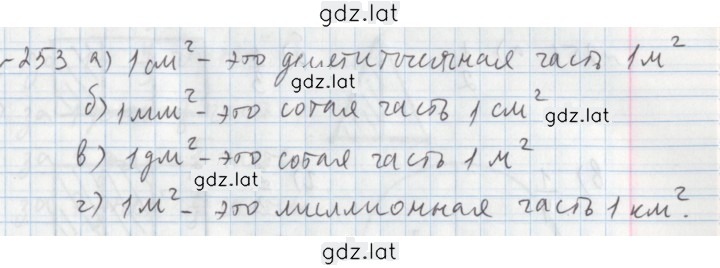 gdz.lat
253 а) 1 см² - это десятитысячная часть 1 м²
gdz.lat
б) 1 мм² - это сотая часть 1 см²
gdz.lat
в) 1 дм² - это сотая часть 1 м²
gdz.lat
г) 1 м² - это миллионная часть 1 км².
gdz.lat